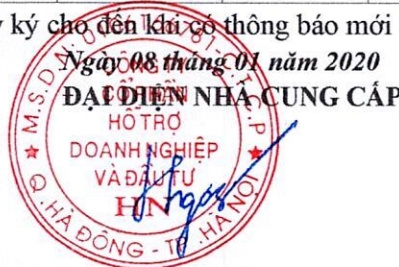 y ký cho đến khi có thông báo mới
Ngày 08 tháng 01 năm 2020
ĐẠI DIỆN NHÀ CUNG CẤP
M.S.D.N
CÔNG TY
CỔ PHẦN
HỖ TRỢ
DOANH NGHIỆP
VÀ ĐẦU TƯ
HN
Q. HÀ ĐÔNG - TP. HÀ NỘI